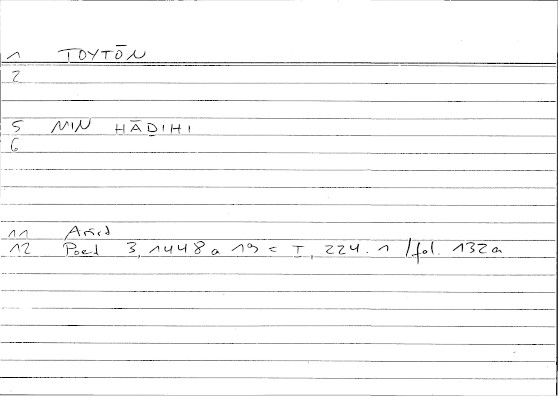 1 TOYTŌN
2
5 MIN HĀḎIHI
6
11 Arist
12 Poet 3, 1448 a 19 = I, 224. 1 / fol. 132a